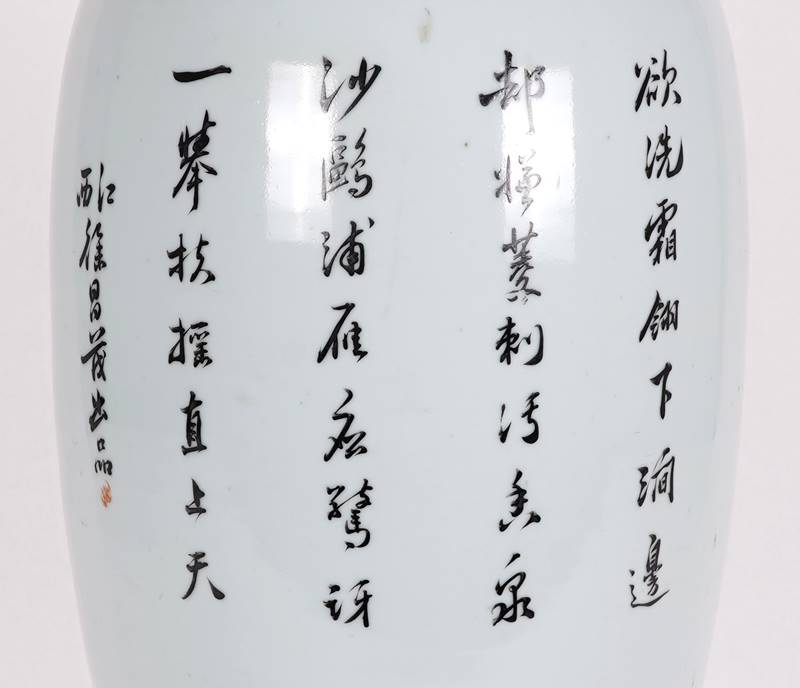 欲洗霜翎下澗邊
却嫌菱刺污香泉
沙鷗浦雁应驚訝
一舉扶搖直上天
西江徐昌茂出品